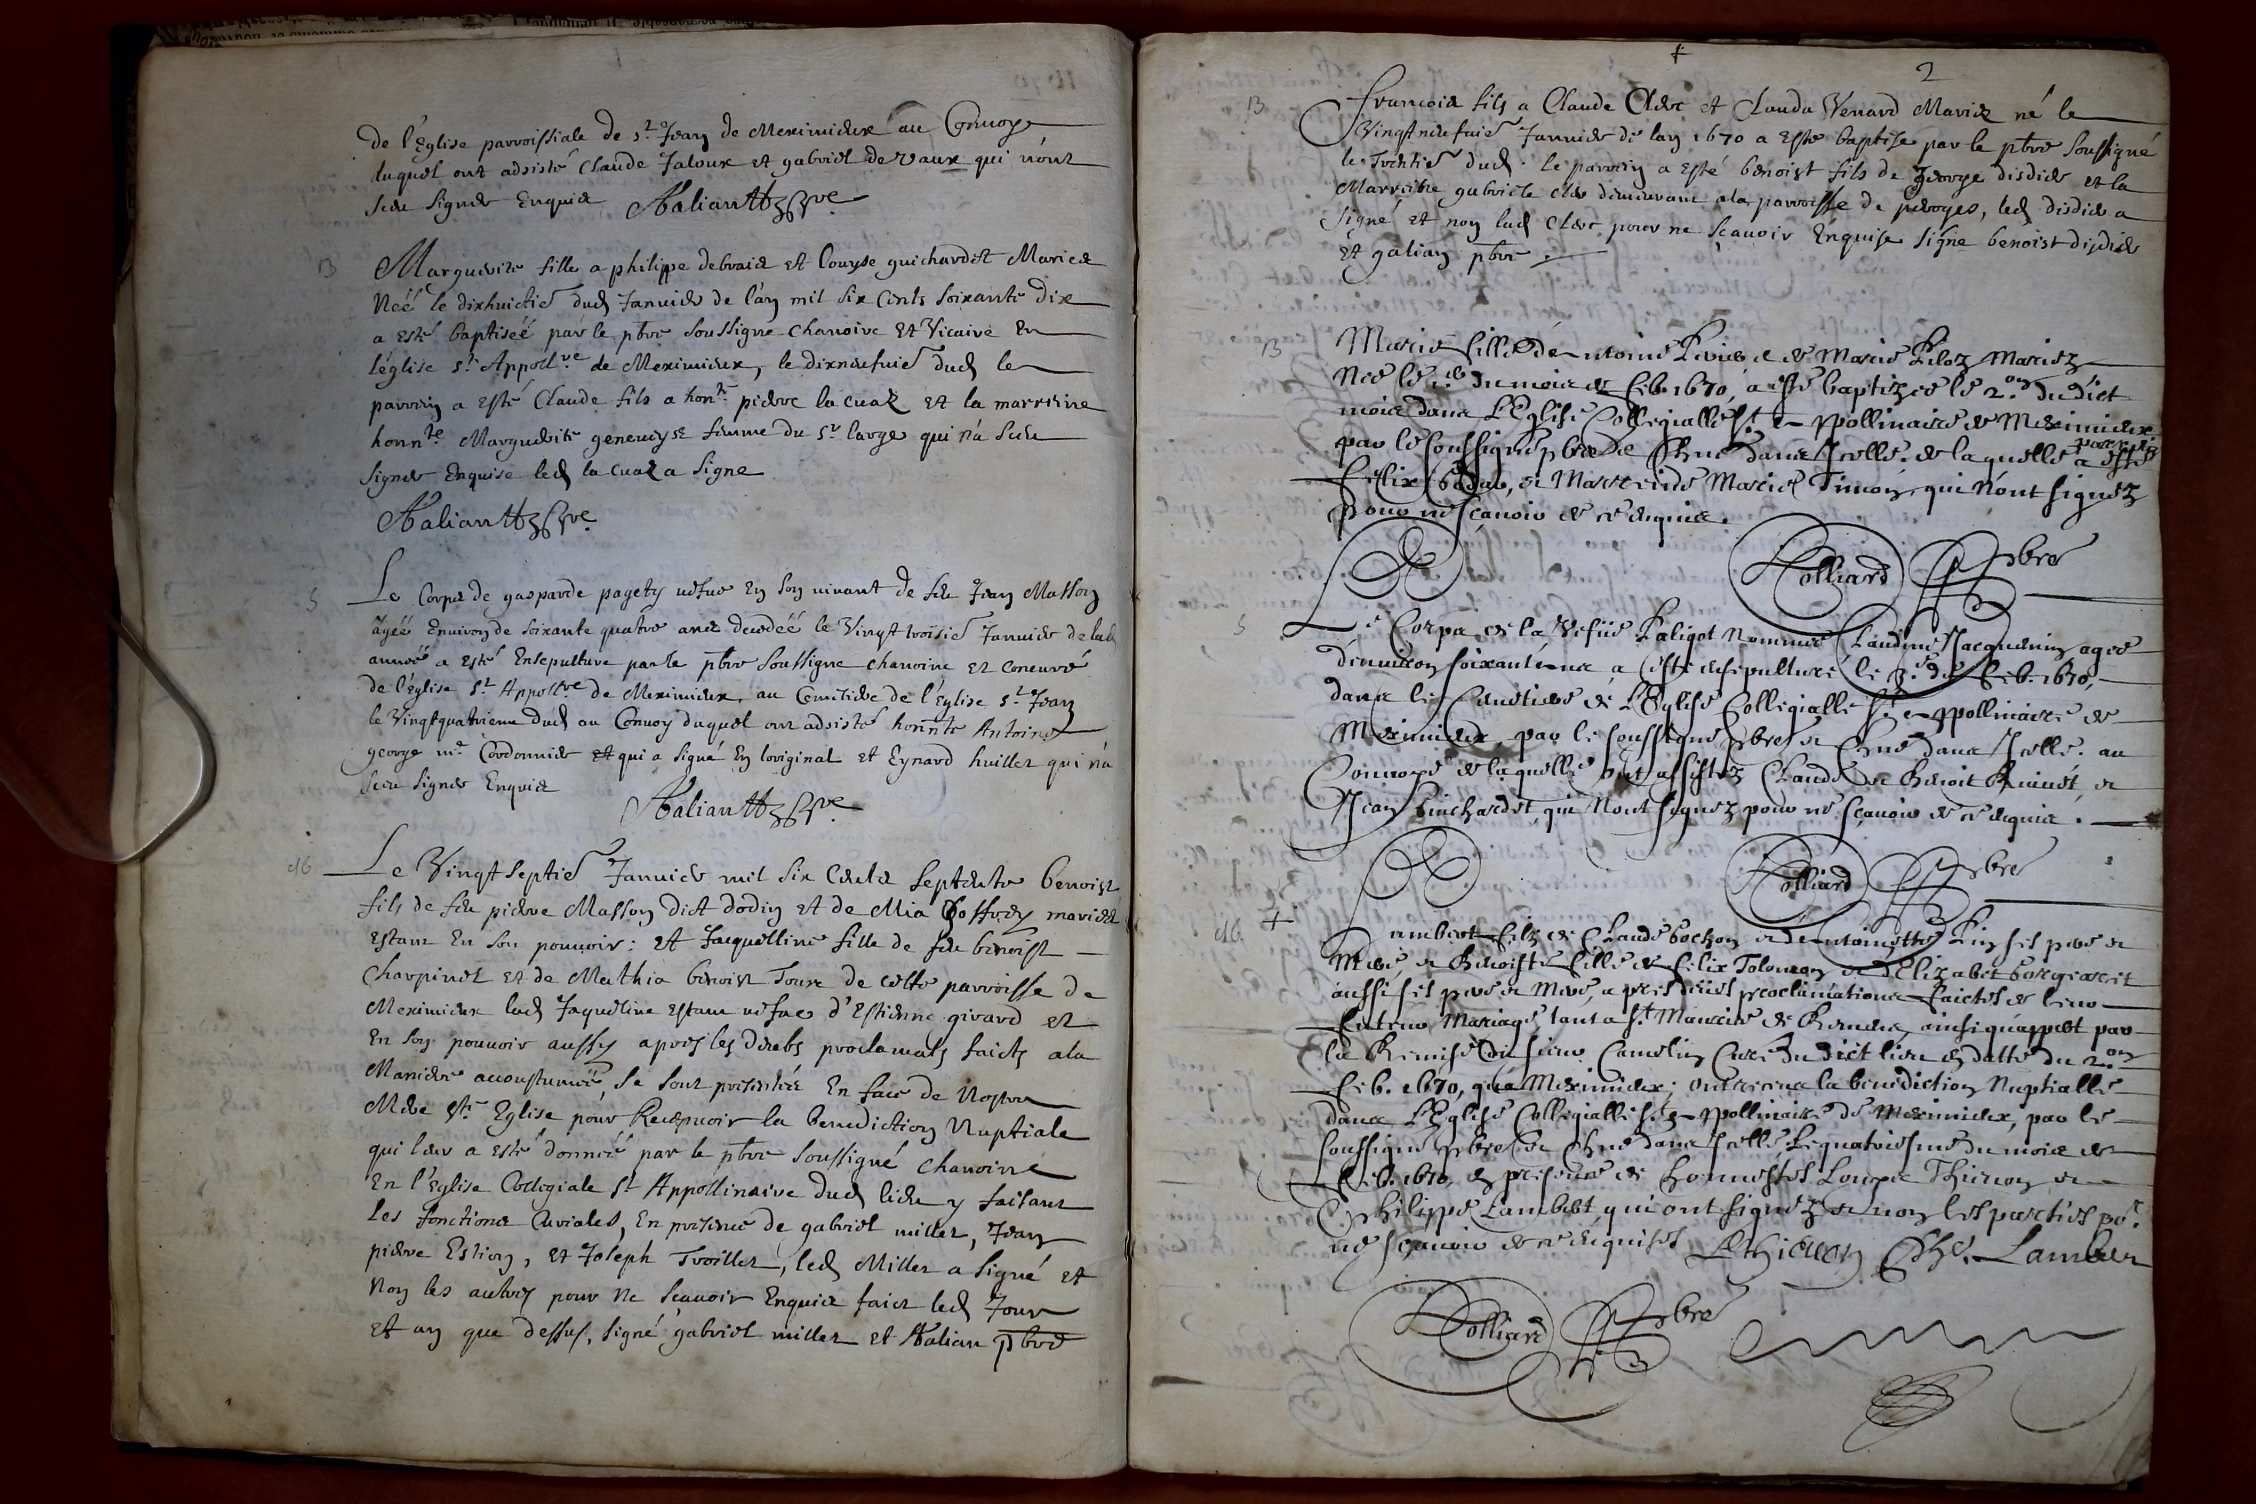 de l'Eglise parroissiale de st Jean de Meximieux au Convoye
duquel ont adsisté Claude Jaloux et gabriel de vaux qui n'ont
sceu signer Enquis Galian ptre
B
Marguerite fille a philippe debrais et Louyse guichardet Maries
Néé le dixhuictie dud Januier de l'an mil six cents soixante dix
a esté baptiséé par le pbre soussigne chanoine et Vicaire En
l'église st Appolre de Meximieux, le dixneufuie dud le
parrein a esté Claude fils a honte pierre la cuaz et la marreine
honnte Marguerite femme du sr large qui n'a sceu
signer Enquise led la cuaz a signe
Galian ptre
S
Le Corps de gasparde pagety uefue En son uiuant de feu Jean Masson
agéé Enuiron de soixante quatre ans decedéé le Vingt troisie Januier de lad
annéé a esté Ensepulture par le pbre soussigne chanoine et concuré
de l'église st Appollre de Meximieux, au Cemitiere de l'Eglise st Jean
le Vingtquatrieme dud au Conuoy duquel ont adsisté honnte Antoine
george me Cordonnier et qui a signé En loriginal et Eynard huillet qui n'a
sceu signer Enquis
Galian ptre
M
Le Vingt septie Januier mil six cents septente benoist
fils de feu pierre Masson dict dodin et de Mia Joffrey maries
estant En son pouuoir: et Jacquelline fille de feu benoist
Charpinet et de Mathia benoist Tous de cette parroisse de
Meximieux lad Jaqueline estant uefue d'Estienne girard et
En son pouuoir aussy apres les deubs proclamats faicts a la
Maniere acoustuméé, se sont presentés En face de Nostre
Mere ste Eglise pour Recepuoir la benediction Nuptiale
qui leur a esté donnéé par le pbre soussigné chanoine
En l'Eglise Collegiale st Appollinaire dud lieu y faisant
les fonctions Curiales, En presence de gabriel millet, Jean
pierre Estion, et Joseph Troillet, led Millet a signé et
Non les autres pour ne scauoir Enquis faict led Jour
et an que dessus, signé gabriel millet et Galian pbre
+
2
B
francois fils a Claude Clerc et Clauda Venard Maries né le
Vingtneufuie Januier de lan 1670 a Este baptise par le pbre soussigné
le Trentie dud. le parrein a esté benoist fils de george disdier et la
Marreine gabriele Clerc demeurant a la parroisse de peroges, led disdier a
signé et non lad Clerc pour ne sçauoir Enquise signe benoist disdier
et galian pbre.
B
Marie fille d'Antoine et de Marie Piloz Mariez
Née le du mois de feb. 1670, a esté baptizée le 2.on du dict
mois dans L'Eglise Collegialle St Appollinaire de Meximieux
par le soussigné pbre et Chne dans Icelle. de laquelle a esté
parrein
felix et Marreine Marie Timon, qui n'ont signez
pour ne sçauoir de ce enquis.
Rolliard Pbre
S
Le Corps de la Vefue Paligot Nommée Claudine Jacquemin agée
d'enuiron soixante ans a esté ensepulturé le 3.e de feb. 1670,
dans le Cimetiere de L'Eglise Collegialle St Appollinaire de
Meximieux par le soussigné pbre et Chne dans Icelle. au
Conuoye de laquelle ont assistez Claude et Benoit et
Jean Guichardet, qui n'ont signez pour ne sçauoir de ce enquis.
Rolliard Pbre
M +
Lambert filz de Claude bochon et d'Antoinette ses pere et
Mere, et Benoiste fille de felix Tolomon et d'Elizabet
aussi ses pere et Mere, apres deues proclamations faictes de leur
futeur Mariage tant a St Maurice de Remens, ainsi qu'appert par
la Remise du sieur Camelin Curé du dict lieu en datte du 2.on
feb. 1670, qu'a Meximieux; ont receus la benediction Nuptialle
dans L'Eglise Collegialle St Appollinaire de Meximieux, par le
soussigné pbre et Chne dans Icelle Le quatriesme du mois de
feb. 1670, en presence de honnestes Louys Thienon et
Philippe Lambert, qui ont signez et non les parties pr
ne sçauoir de ce enquises LThienon Phe. Lamber
Rolliard Pbre